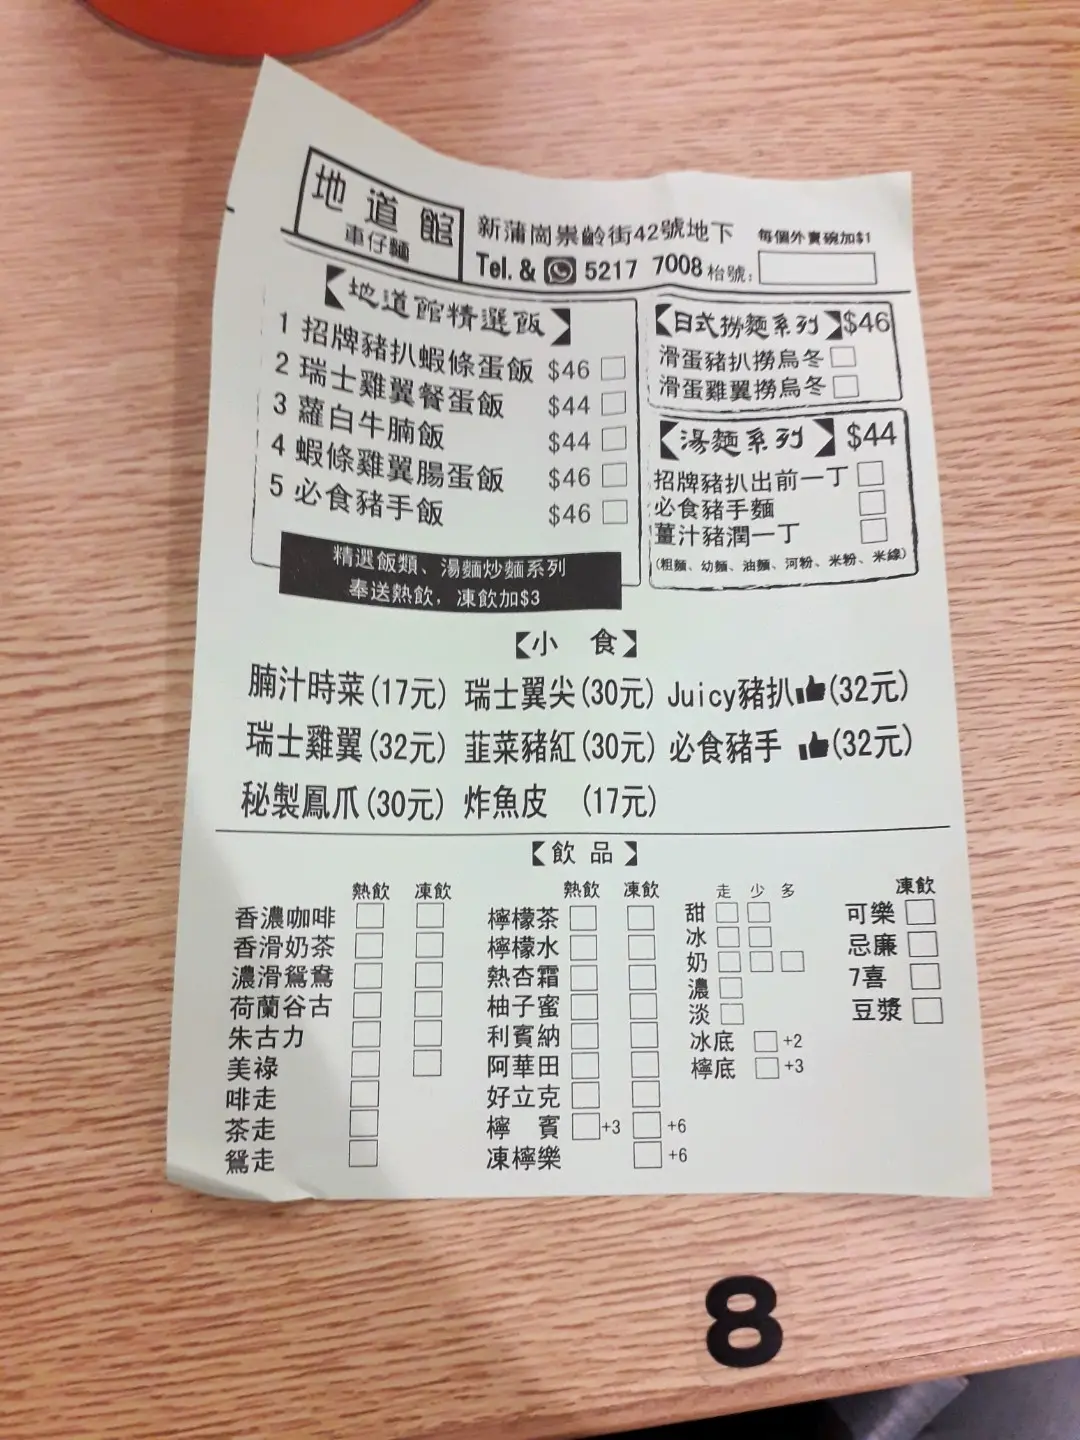 地道館
車仔麵
新蒲崗崇齡街42號地下 每個外賣碗加$1
Tel. & 5217 7008 枱號:
【地道館精選飯】
1 招牌豬扒蝦條蛋飯 $46
2 瑞士雞翼餐蛋飯 $44
3 蘿白牛腩飯 $44
4 蝦條雞翼腸蛋飯 $46
5 必食豬手飯 $46
精選飯類、湯麵炒麵系列
奉送熱飲，凍飲加$3
【日式撈麵系列】$46
滑蛋豬扒撈烏冬
滑蛋雞翼撈烏冬
【湯麵系列】 $44
招牌豬扒出前一丁
必食豬手麵
薑汁豬潤一丁
(粗麵、幼麵、油麵、河粉、米粉、米線)
【小 食】
腩汁時菜(17元) 瑞士翼尖(30元) Juicy豬扒(32元)
瑞士雞翼(32元) 韮菜豬紅(30元) 必食豬手 (32元)
秘製鳳爪(30元) 炸魚皮 (17元)
【飲 品】
熱飲 凍飲
香濃咖啡
香滑奶茶
濃滑鴛鴦
荷蘭谷古
朱古力
美祿
啡走
茶走
鴛走
熱飲 凍飲
檸檬茶
檸檬水
熱杏霜
柚子蜜
利賓納
阿華田
好立克
檸 賓 +3 +6
凍檸樂 +6
走 少 多
甜
冰
奶
濃
淡
冰底 +2
檸底 +3
凍飲
可樂
忌廉
7喜
豆漿
8